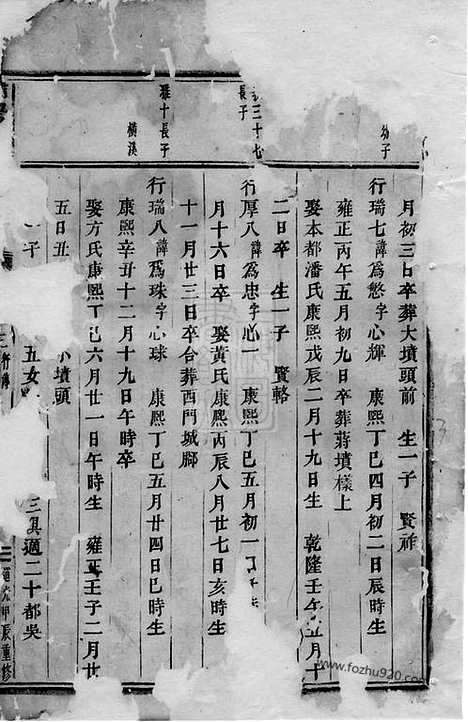 幼子
月初三日卒葬大墳頭前 生一子 賢祥
行瑞七諱為慜字心輝 康熙丁巳四月初二日辰時生
雍正丙午五月初九日卒葬蔣墳樣上
娶本都潘氏康熙戊辰二月十九日生 乾隆壬午五月十
二日卒 生一子 賢輅
三十七
長子
行厚八諱為忠字心一 康熙丁巳五月初一日
月十六日卒 娶黃氏康熙丙辰八月廿七日亥時生
十一月廿三日卒合葬西門城腳
雅十長子
行瑞八諱為珠字心球 康熙丁巳五月廿四日巳時生
橫溪
康熙辛丑十二月十九日午時卒
娶方氏康熙丁巳六月廿一日午時生 雍正壬子二月廿
五日丑 墳頭
子 五女 三具適二十都吳
甲辰重修
www.fozhu920.com